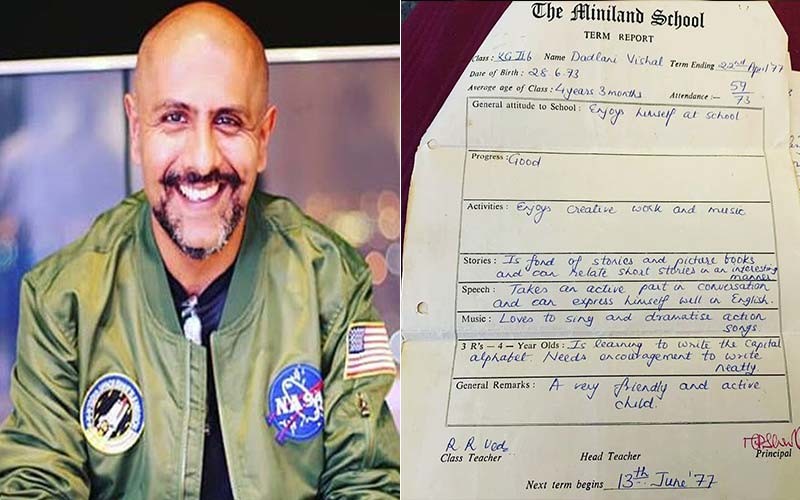 NASA
The Miniland School
TERM REPORT
Class: KG II b Name Dadlani Vishal Term Ending 22nd April '77
Date of Birth: 28.6.73
Average age of Class: 4 years 3 months Attendance:- 59/73
General attitude to School: Enjoys himself at school
Progress: Good
Activities: Enjoys creative work and music
Stories: Is fond of stories and picture books
and can relate short stories in an interesting
manner
Speech: Takes an active part in conversation
and can express himself well in English.
Music: Loves to sing and dramatise action
songs.
3 R's-4-Year Olds: Is learning to write the capital
alphabet. Needs encouragement to write
neatly.
General Remarks: A very friendly and active
child.
R R Ved
Class Teacher Head Teacher Principal
Next term begins 13th June '77